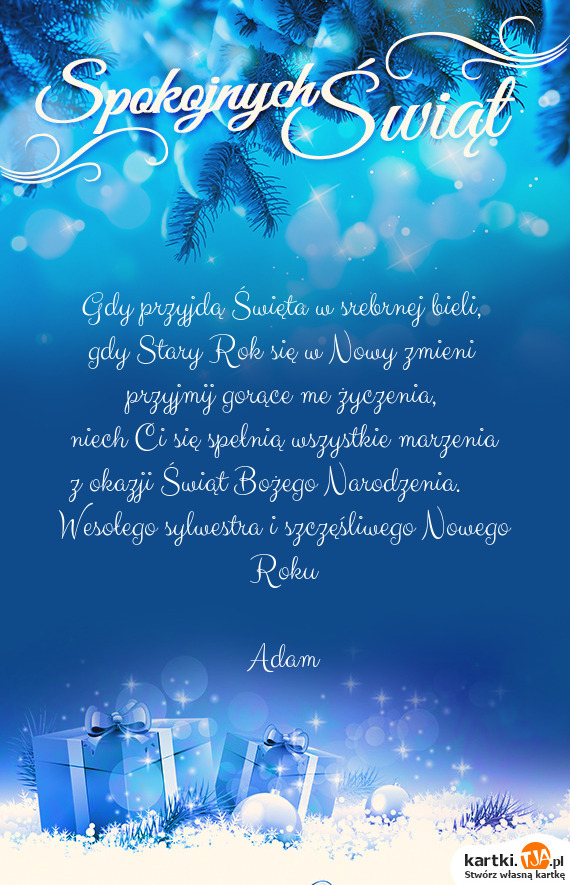 Spokojnych Świąt
Gdy przyjdą Święta w srebrnej bieli,
gdy Stary Rok się w Nowy zmieni
przyjmij gorące me życzenia,
niech Ci się spełnią wszystkie marzenia
z okazji Świąt Bożego Narodzenia.
Wesołego sylwestra i szczęśliwego Nowego
Roku
Adam
kartki.TJA.pl
Stwórz własną kartkę